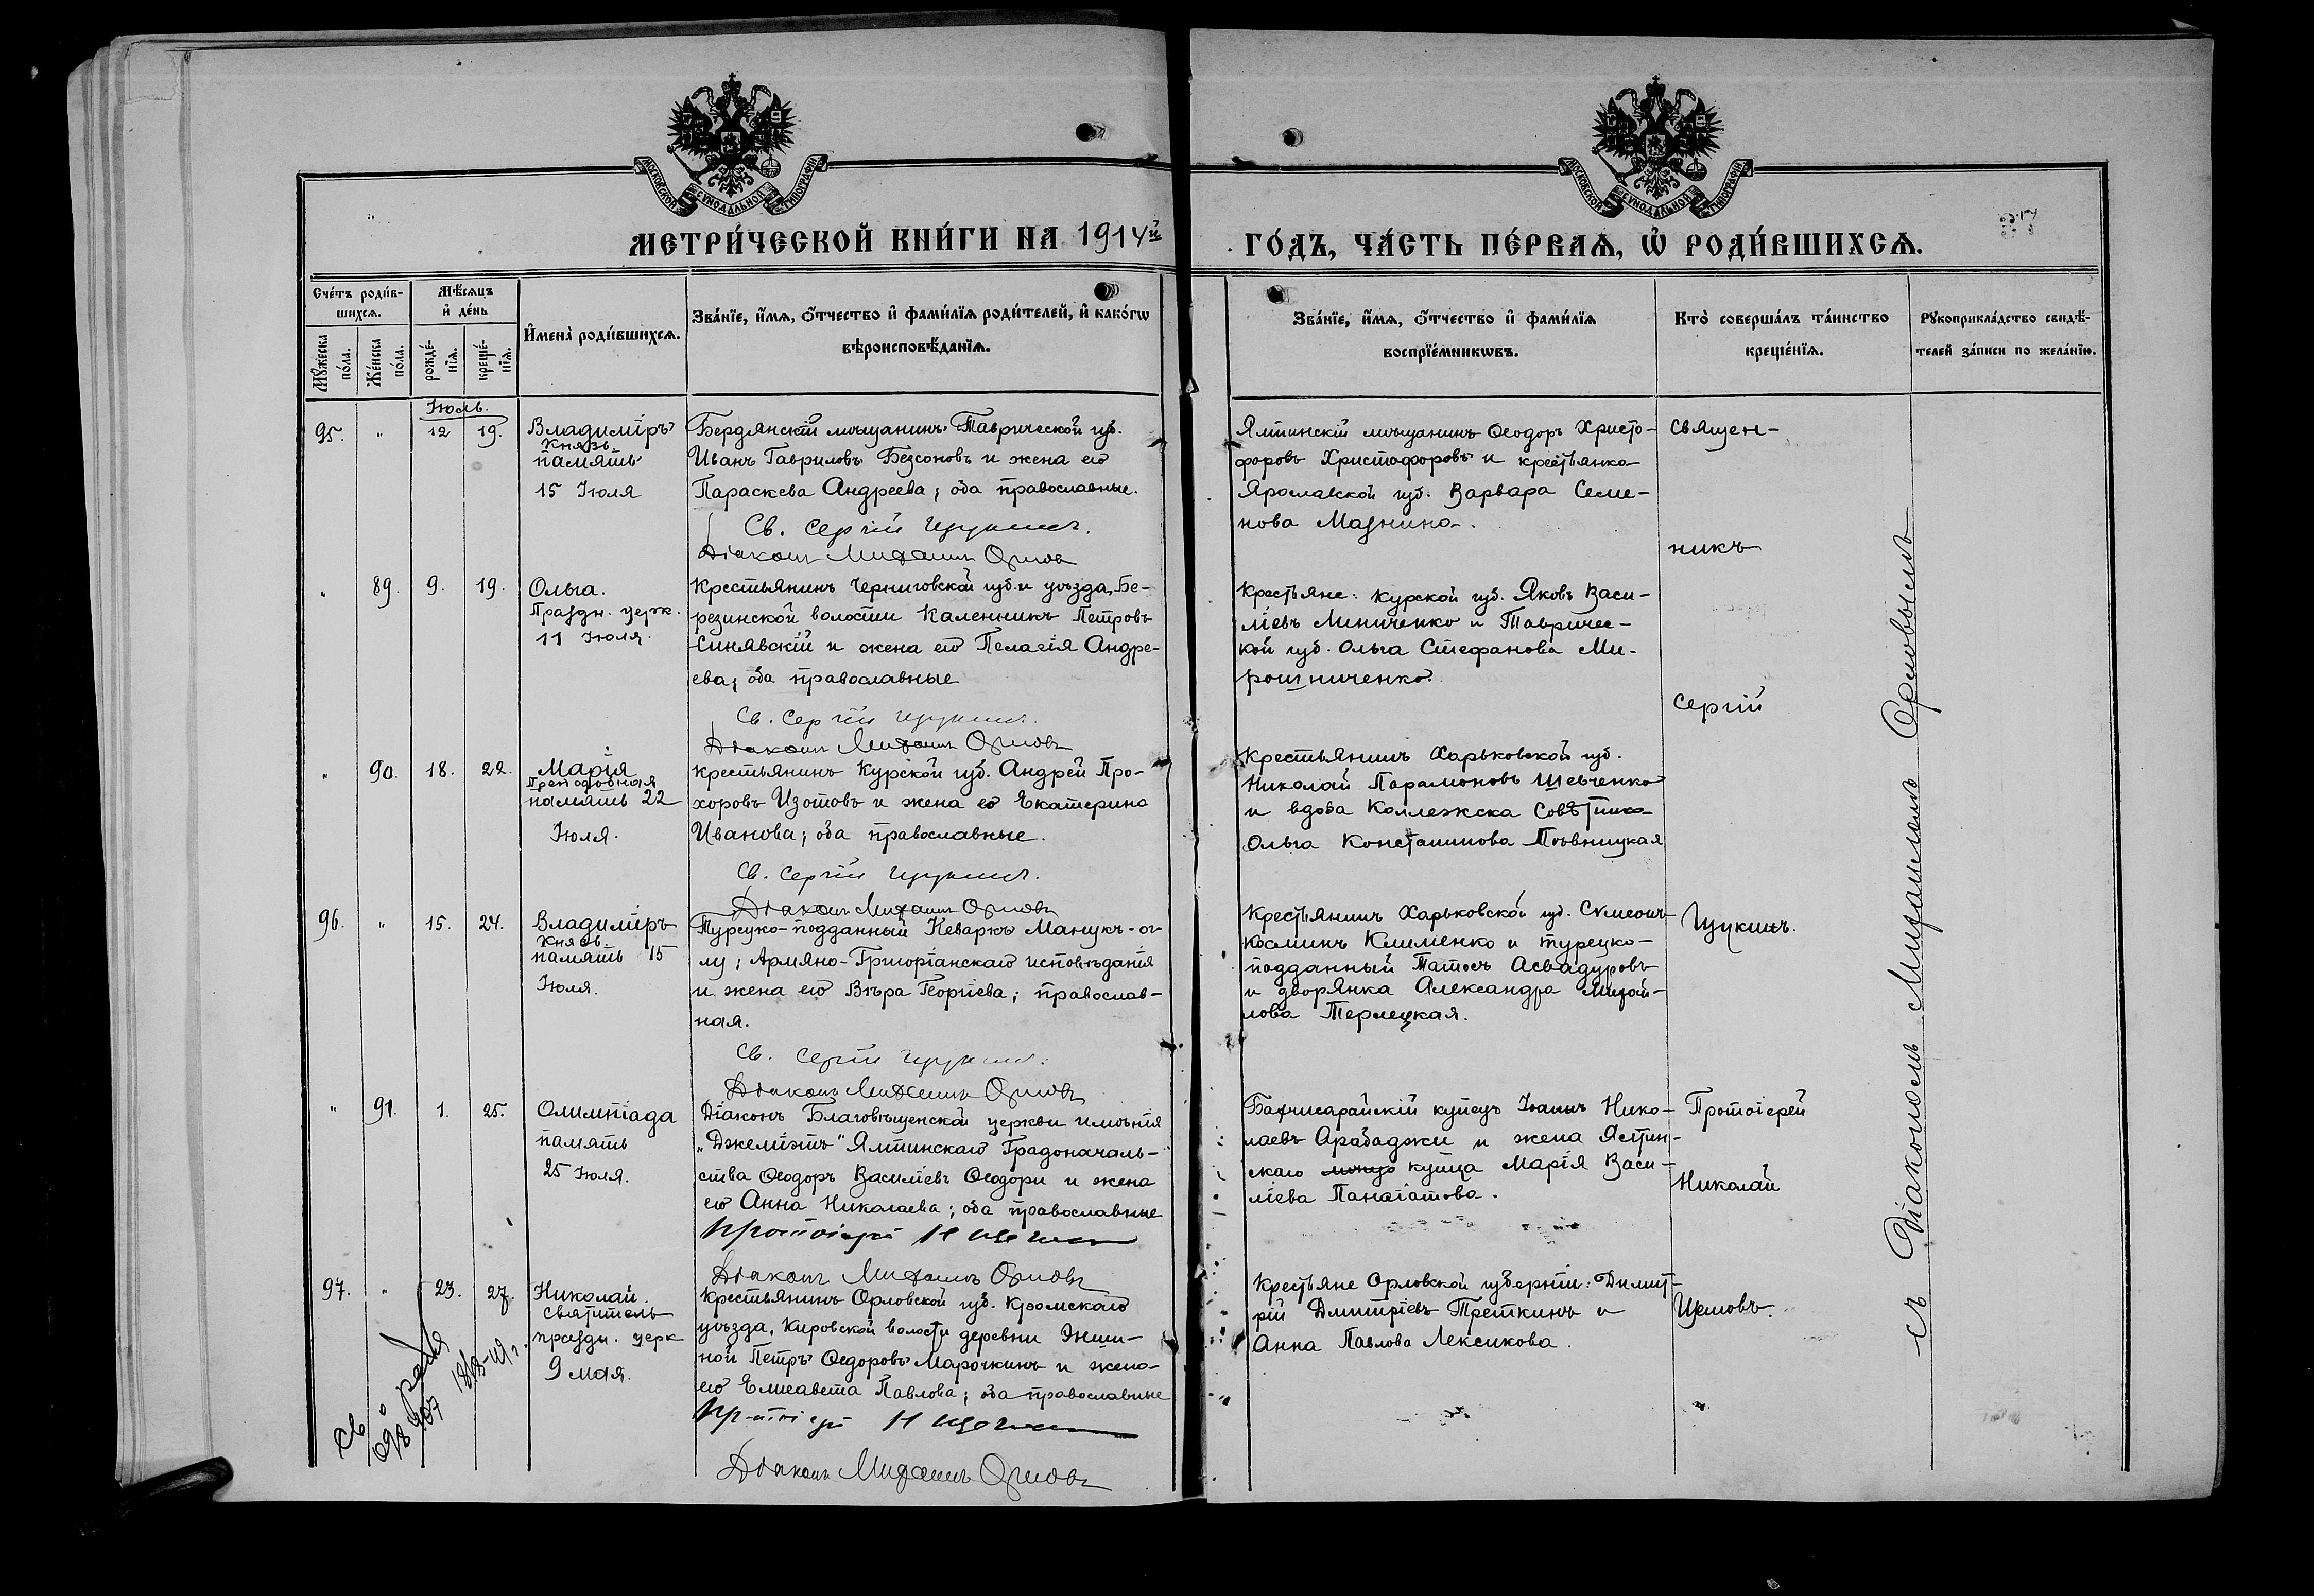 МОСКОВСКОЙ СѴНОДАЛЬНОЙ ТИПОГРАФІИ
МОСКОВСКОЙ СѴНОДАЛЬНОЙ ТИПОГРАФІИ
МЕТРИ́ЧЕСКОЙ КНИ́ГИ НА 1914й
ГО́ДЪ, ЧА́СТЬ ПЕ́РВАѦ, Ѡ҆ РОДИ́ВШИХСѦ.
Сче́тъ роди́в-
шихсѧ.
Мѣ́сѧцъ
и҆ де́нь
Мꙋ́жеска
по́ла.
Же́нска
по́ла.
рожде́-
нїѧ.
креще́-
нїѧ.
И҆мена̀ роди́вшихсѧ.
Зва́нїе, и҆́мѧ, ѻ҆́тчество и҆ фами́лїѧ роди́телей, и҆ како́гѡ
вѣроисповѣ́данїѧ.
Зва́нїе, и҆́мѧ, ѻ҆́тчество и҆ фами́лїѧ
воспрїе́мникѡвъ.
Кто̀ соверша́лъ та́инство
креще́нїѧ.
Рꙋкоприкла́дство свидѣ́-
телей за́писи по жела́нїю.
Іюль.
95. " 12 19. Владиміръ
Князь
память
15 Іюля
Бердянскій мѣщанинъ Таврической губ.
Иванъ Гавриловъ Безсоновъ и жена его
Параскева Андреева; оба православные.
Св. Сергій Щукинъ.
Діаконъ Михаилъ Орловъ
Ялтинскій мѣщанинъ Ѳеодоръ Христо-
форовъ Христофоровъ и крестьянка
Ярославской губ. Варвара Семе-
нова Мазнина.
Священ-
никъ
" 89. 9. 19. Ольга.
Праздн. церк.
11 Іюля.
Крестьянинъ Черниговской губ. и уѣзда, Бе-
резинской волости Каленникъ Петровъ
Синявскій и жена его Пелагія Андре-
ева; оба православные
Св. Сергій Щукинъ.
Діаконъ Михаилъ Орловъ
Крестьяне: Курской губ. Яковъ Васи-
ліевъ Линиченко и Тавричес-
кой губ. Ольга Стефанова Ми-
рошниченко.
Сергій
" 90. 18. 22. Марія
Преподобная
память 22
Іюля.
Крестьянинъ Курской губ. Андрей Про-
хоровъ Изотовъ и жена его Екатерина
Иванова; оба православные.
Св. Сергій Щукинъ.
Діаконъ Михаилъ Орловъ
Крестьянинъ Харьковской губ.
Николай Парамоновъ Шевченко
и вдова Коллежска Совѣтника
Ольга Константинова
96. " 15. 24. Владиміръ
Князь
память 15
Іюля.
Турецко-подданный Кеваркъ Манукъ-ог-
лу; Армяно-Григоріанскаго исповѣданія
и жена его Вѣра Георгіева; православ-
ная.
Св. Сергій Щукинъ.
Діаконъ Михаилъ Орловъ
Крестьянинъ Харьковской губ. Сѵмеонъ
Косминъ Клименко и турецко-
подданный Татосъ Асвадуровъ
и дворянка Александра Михай-
лова Терлецкая.
Щукинъ.
" 91. 1. 25. Олимпіада
память
25 Іюля.
Діаконъ Благовѣщенской церкви имѣнія
"Джеміэтъ" Ялтинскаго Градоначаль-
ства Ѳеодоръ Василіевъ Ѳеодори и жена
его Анна Николаева; оба православные
Протоіерей Н
Діаконъ Михаилъ Орловъ
Бахчисарайскій купецъ Іоаннъ Нико-
лаевъ Арабаджи и жена Ялтин-
скаго купца Марія Васи-
ліева Панагіотова.
Протоіерей
Николай
97. " 23. 27. Николай.
Святитель
праздн. церк
9 мая.
Крестьянинъ Орловской губ. Кромскаго
уѣзда, Кировской волости деревни
Петръ Ѳедоровъ Марочкинъ и жена
его Елисавета Павлова; оба православные
Протоіерей Н
Діаконъ Михаилъ Орловъ
Крестьяне Орловской губерніи: Димит-
рій Дмитріевъ Треткинъ и
Анна Павлова Лексикова.
съ Діакономъ Михаиломъ Орловымъ